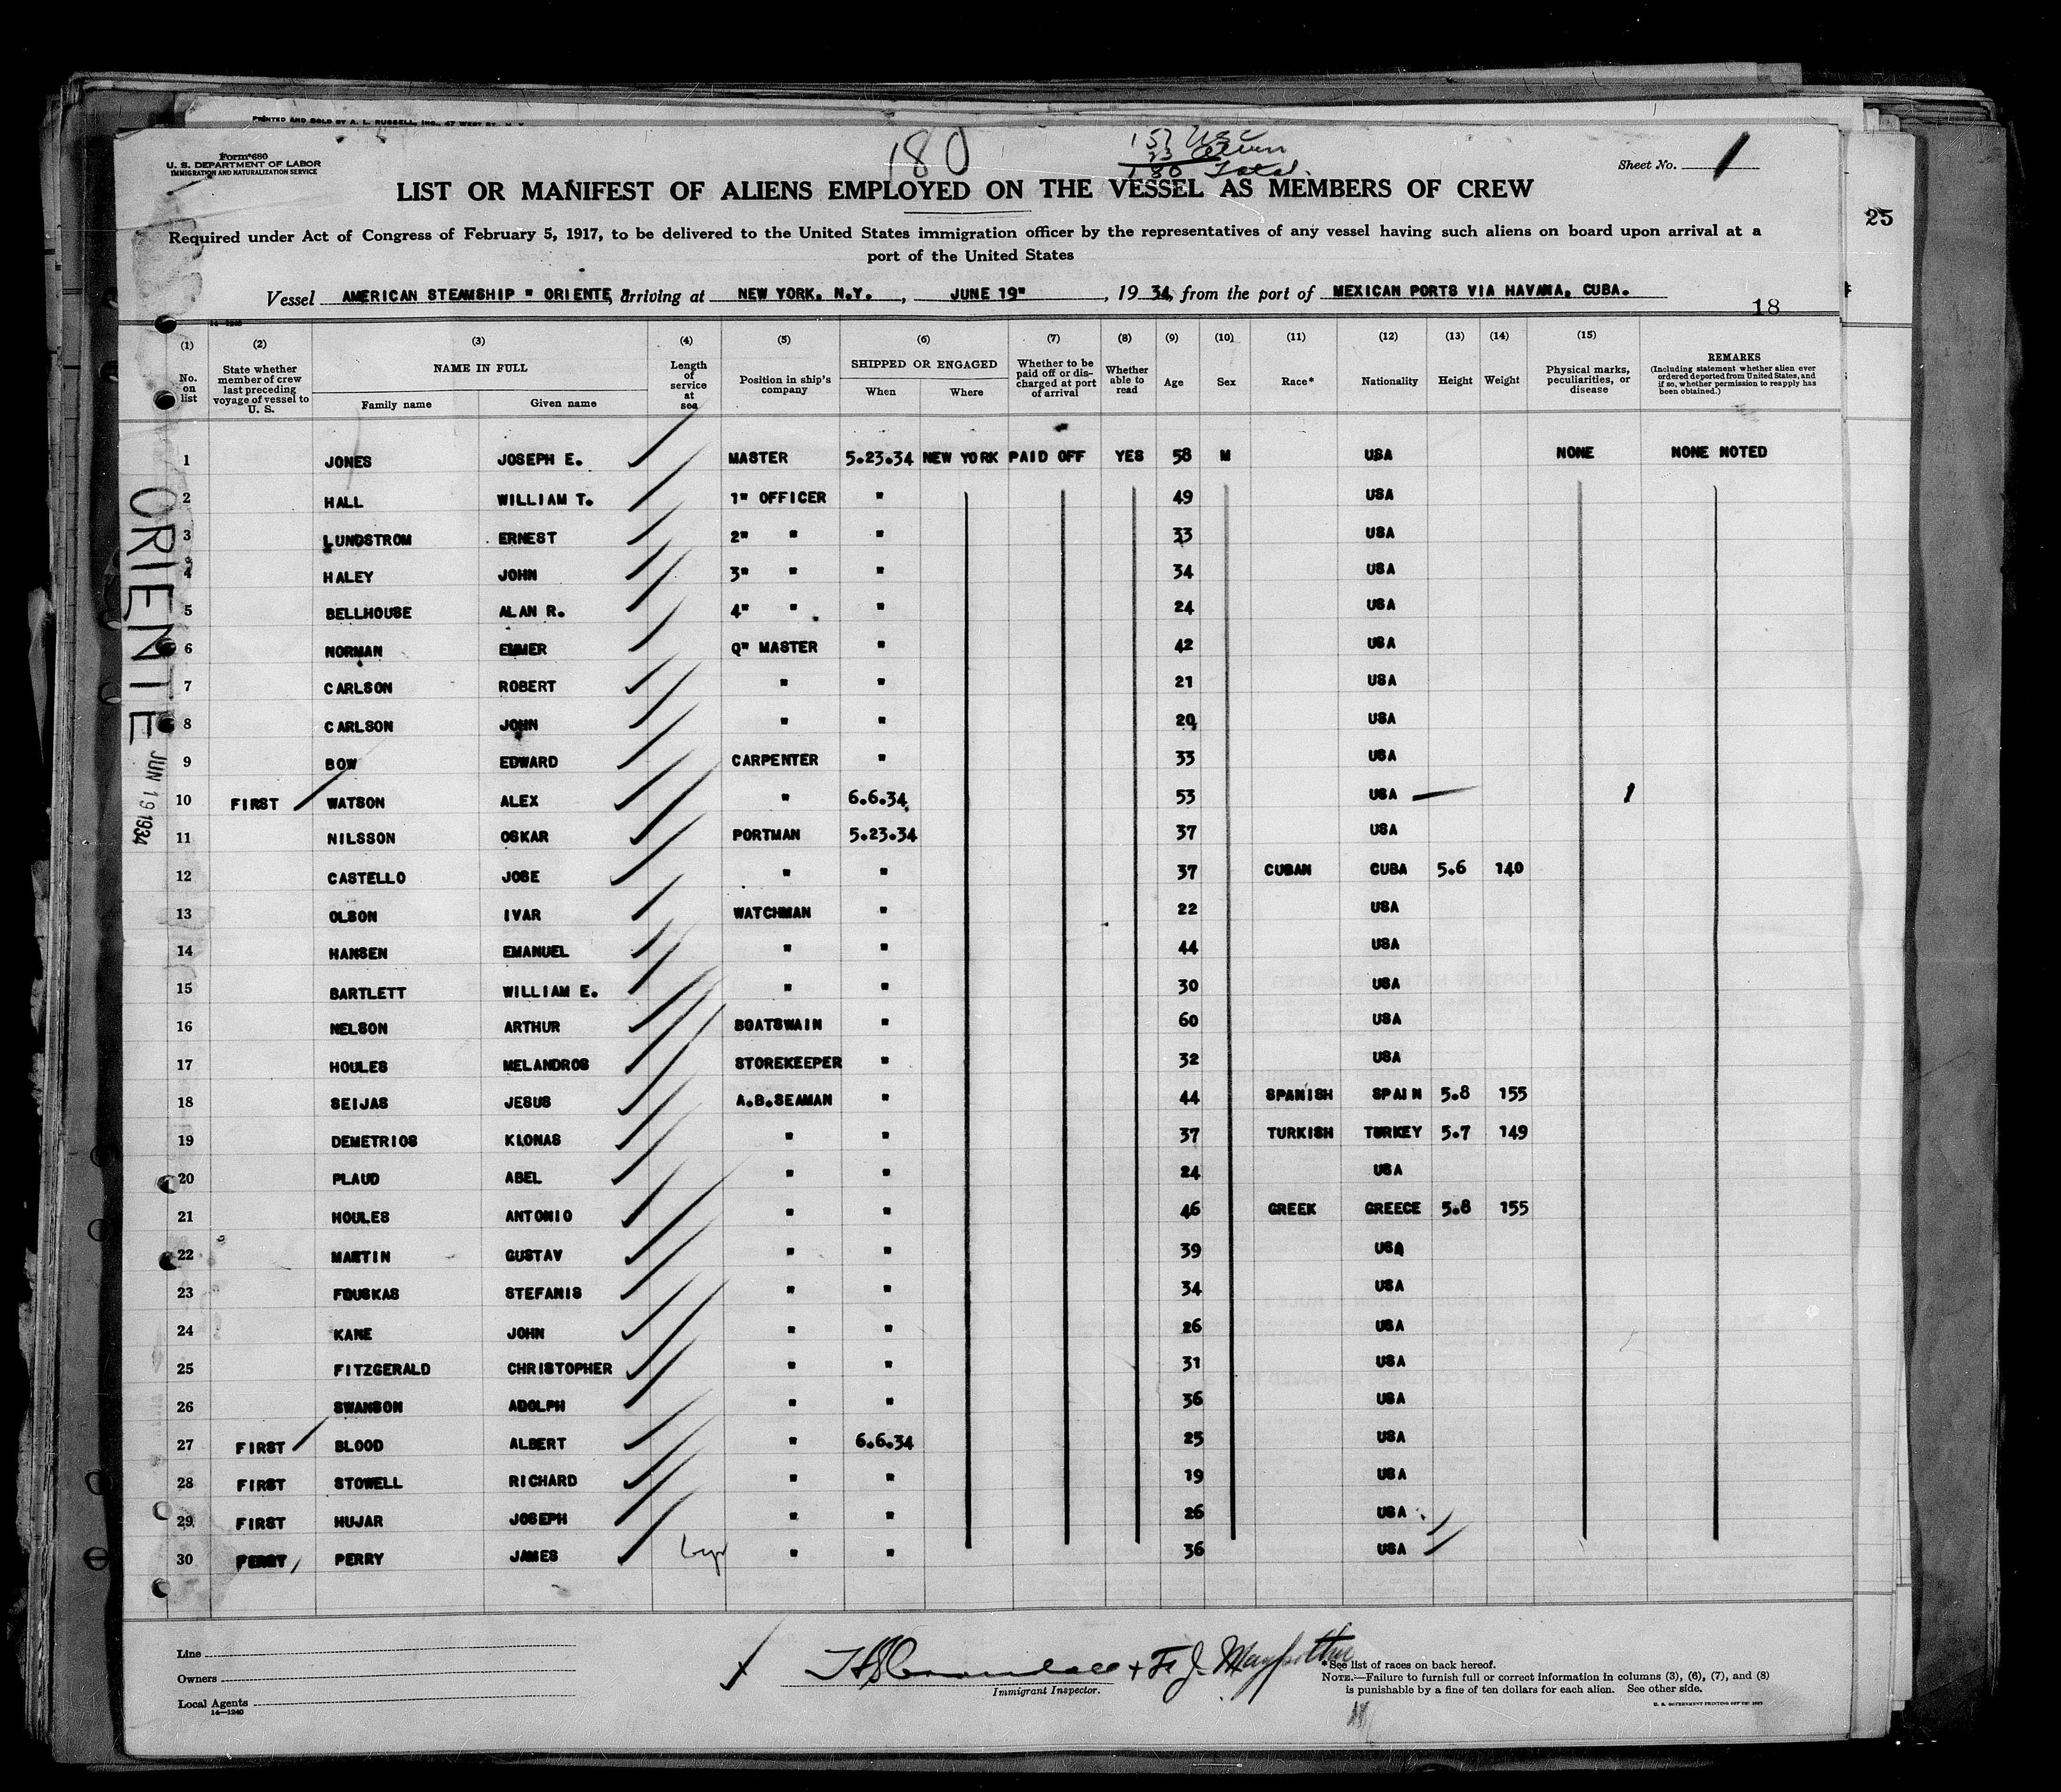 PRINTED AND SOLD BY A. L. RUSSELL, INC., 47 WEST ST. N. Y.
Form 680
U. S. DEPARTMENT OF LABOR
IMMIGRATION AND NATURALIZATION SERVICE
180
157 USC
23 Alien
180 Total.
Sheet No. 1
LIST OR MANIFEST OF ALIENS EMPLOYED ON THE VESSEL AS MEMBERS OF CREW
25
Required under Act of Congress of February 5, 1917, to be delivered to the United States immigration officer by the representatives of any vessel having such aliens on board upon arrival at a
port of the United States
Vessel AMERICAN STEAMSHIP " ORIENTE", arriving at NEW YORK. N.Y. , JUNE 19" , 19 34, from the port of MEXICAN PORTS VIA HAVANA, CUBA.
18
14—1240
(1) (2) (3) (4) (5) (6) (7) (8) (9) (10) (11) (12) (13) (14) (15)
No. on list
State whether member of crew last preceding voyage of vessel to U. S.
NAME IN FULL
Family name Given name
Length of service at sea
Position in ship's company
SHIPPED OR ENGAGED
When Where
Whether to be paid off or discharged at port of arrival
Whether able to read
Age Sex Race* Nationality Height Weight
Physical marks, peculiarities, or disease
REMARKS
(Including statement whether alien ever ordered deported from United States, and if so, whether permission to reapply has been obtained.)
1 JONES JOSEPH E. MASTER 5.23.34 NEW YORK PAID OFF YES 58 M USA NONE NONE NOTED
2 HALL WILLIAM T. 1" OFFICER " 49 USA
3 LUNDSTROM ERNEST 2" " " 33 USA
4 HALEY JOHN 3" " " 34 USA
5 BELLHOUSE ALAN R. 4" " " 24 USA
6 NORMAN ELMER Q" MASTER " 42 USA
7 CARLSON ROBERT " " 21 USA
8 CARLSON JOHN " " 20 USA
9 BOW EDWARD CARPENTER " 33 USA
10 FIRST WATSON ALEX " 6.6.34 53 USA 1
11 NILSSON OSKAR PORTMAN 5.23.34 37 USA
12 CASTELLO JOSE " " 37 CUBAN CUBA 5.6 140
13 OLSON IVAR WATCHMAN " 22 USA
14 HANSEN EMANUEL " " 44 USA
15 BARTLETT WILLIAM E. " " 30 USA
16 NELSON ARTHUR BOATSWAIN " 60 USA
17 HOULES MELANDROS STOREKEEPER " 32 USA
18 SEIJAS JESUS A.B.SEAMAN " 44 SPANISH SPAIN 5.8 155
19 DEMETRIOS KLONAS " " 37 TURKISH TURKEY 5.7 149
20 PLAUD ABEL " " 24 USA
21 HOULES ANTONIO " " 46 GREEK GREECE 5.8 155
22 MARTIN GUSTAV " " 39 USA
23 FOUSKAS STEFANIS " " 34 USA
24 KANE JOHN " " 26 USA
25 FITZGERALD CHRISTOPHER " " 31 USA
26 SWANSON ADOLPH " " 36 USA
27 FIRST BLOOD ALBERT " 6.6.34 25 USA
28 FIRST STOWELL RICHARD " " 19 USA
29 FIRST HUJAR JOSEPH " " 26 USA
30 PERRY JAMES " " 36 USA
ORIENTE
JUN 19 1934
Line
Owners
Local Agents
14—1240
Immigrant Inspector.
*See list of races on back hereof.
NOTE.—Failure to furnish full or correct information in columns (3), (6), (7), and (8)
is punishable by a fine of ten dollars for each alien. See other side.